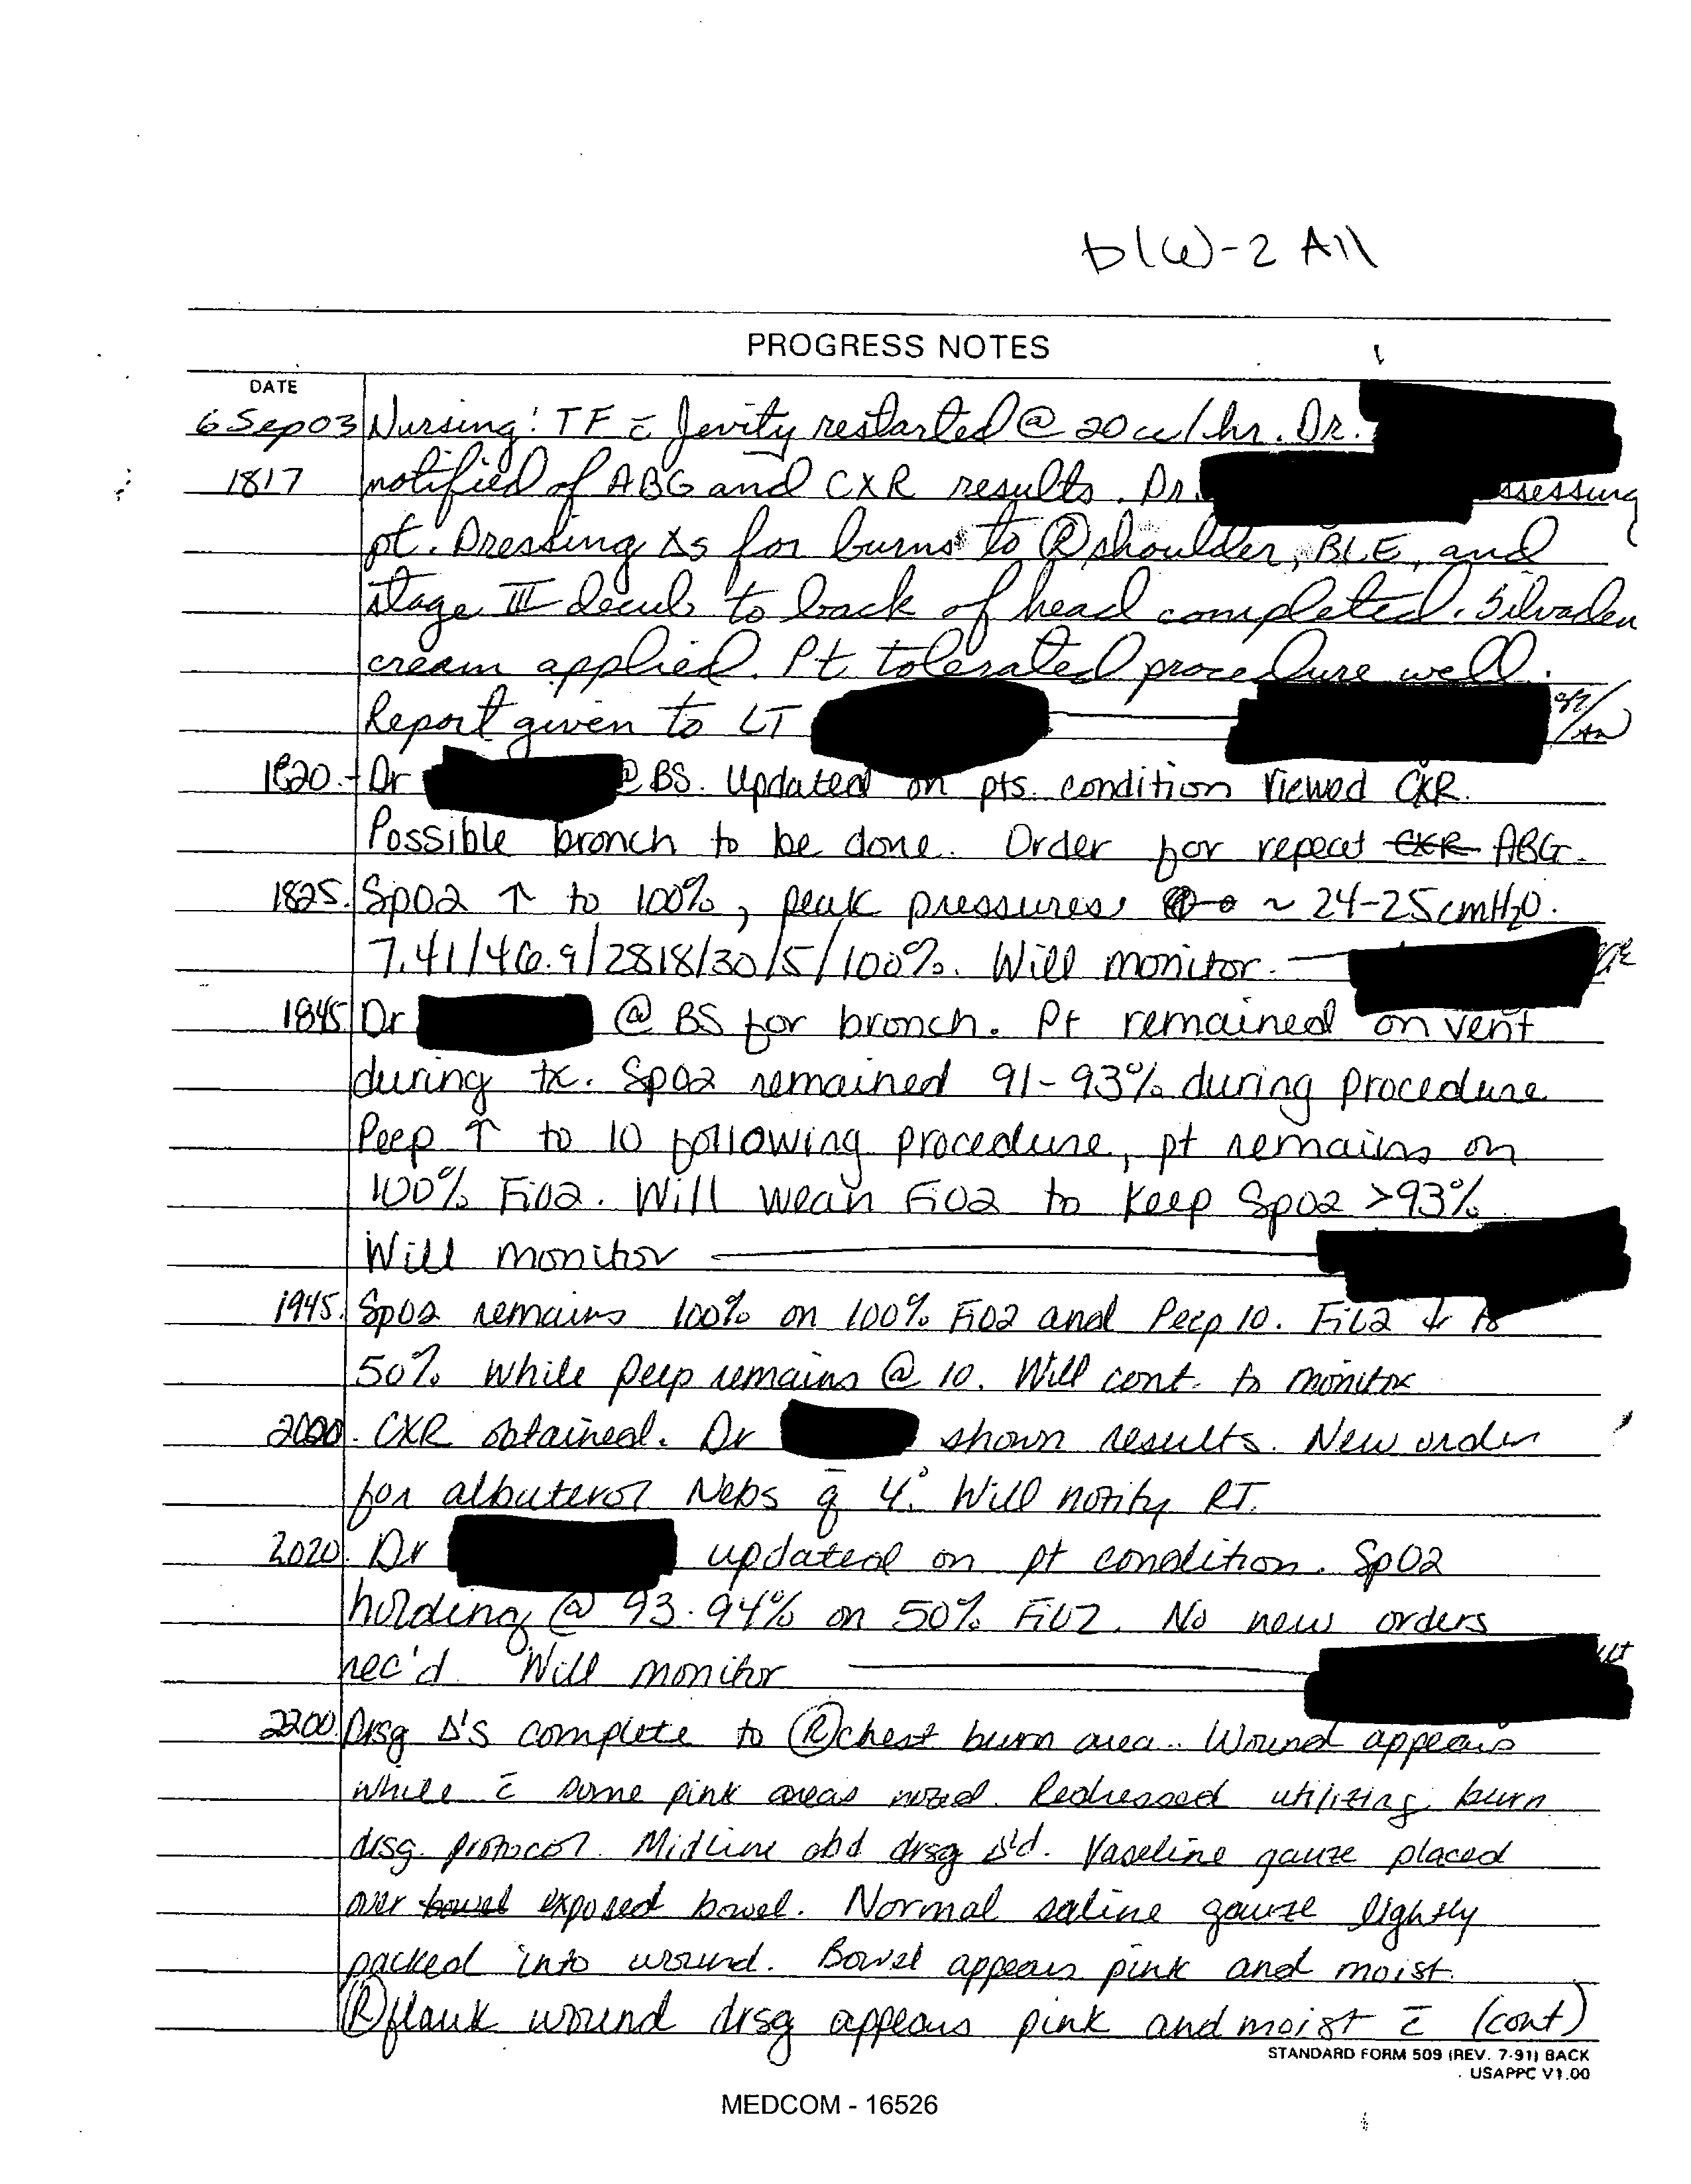 b(6)-2 All
PROGRESS NOTES
DATE
6 Sep 03 Nursing: TF c̄ Jevity restarted @ 20 cc/hr. Dr.
1817 notified of ABG and CXR results. Dr. ssessing
pt. Dressing Δs for burns to Ⓡ shoulder, BLE, and
stage III decub to back of head completed. Silvaden
cream applied. Pt tolerated procedure well.
Report given to LT
1820. Dr @ BS. Updated on pts. condition Viewed CXR.
Possible bronch to be done. Order for repeat CXR ABG.
1825. SpO2 ↑ to 100%, peak pressures ~ 24-25 cmH2O.
7.41/46.9/281 /30/5/100%. Will monitor.
1845 Dr @ BS for bronch. Pt remained on vent
during tx. SpO2 remained 91-93% during procedure
Peep ↑ to 10 following procedure, pt remains on
100% FiO2. Will wean FiO2 to keep SpO2 >93%
Will monitor
1945. SpO2 remains 100% on 100% FiO2 and Peep 10. FiO2 ↓ to
50% while peep remains @ 10. Will cont. to monitor
2000. CXR obtained. Dr shown results. New order
for albuterol Nebs q̄ 4°. Will notify RT.
2020. Dr updated on pt condition. SpO2
holding @ 93-94% on 50% FiO2. No new orders
rec'd. Will monitor
2200. Drsg Δ's complete to Ⓡ chest burn area. Wound appears
white c̄ some pink areas noted. Redressed utilizing burn
drsg. protocol. Midline abd drsg Δ'd. Vaseline gauze placed
over bowel exposed bowel. Normal saline gauze lightly
packed into wound. Bowel appears pink and moist.
Ⓡ flank wound drsg appears pink and moist c̄ (cont)
STANDARD FORM 509 (REV. 7-91) BACK
USAPPC V1.00
MEDCOM - 16526